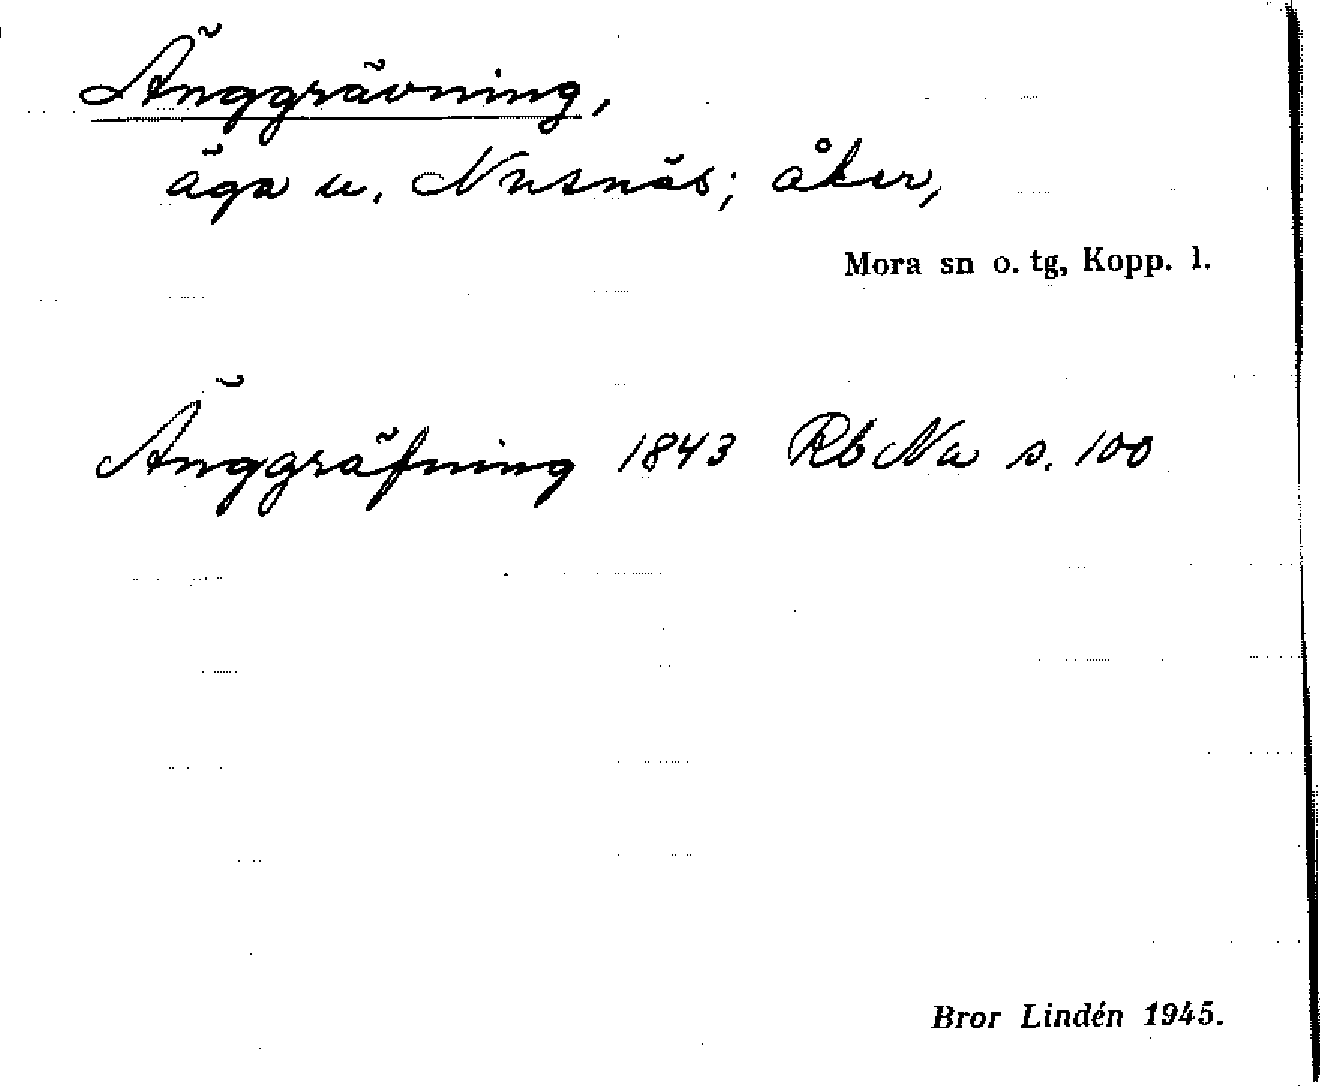 Änggrävning,
äga u. Nusnäs; åker,
Mora sn o. tg, Kopp. l.
Änggräfning 1843 Rb Na s. 100
Bror Lindén 1945.